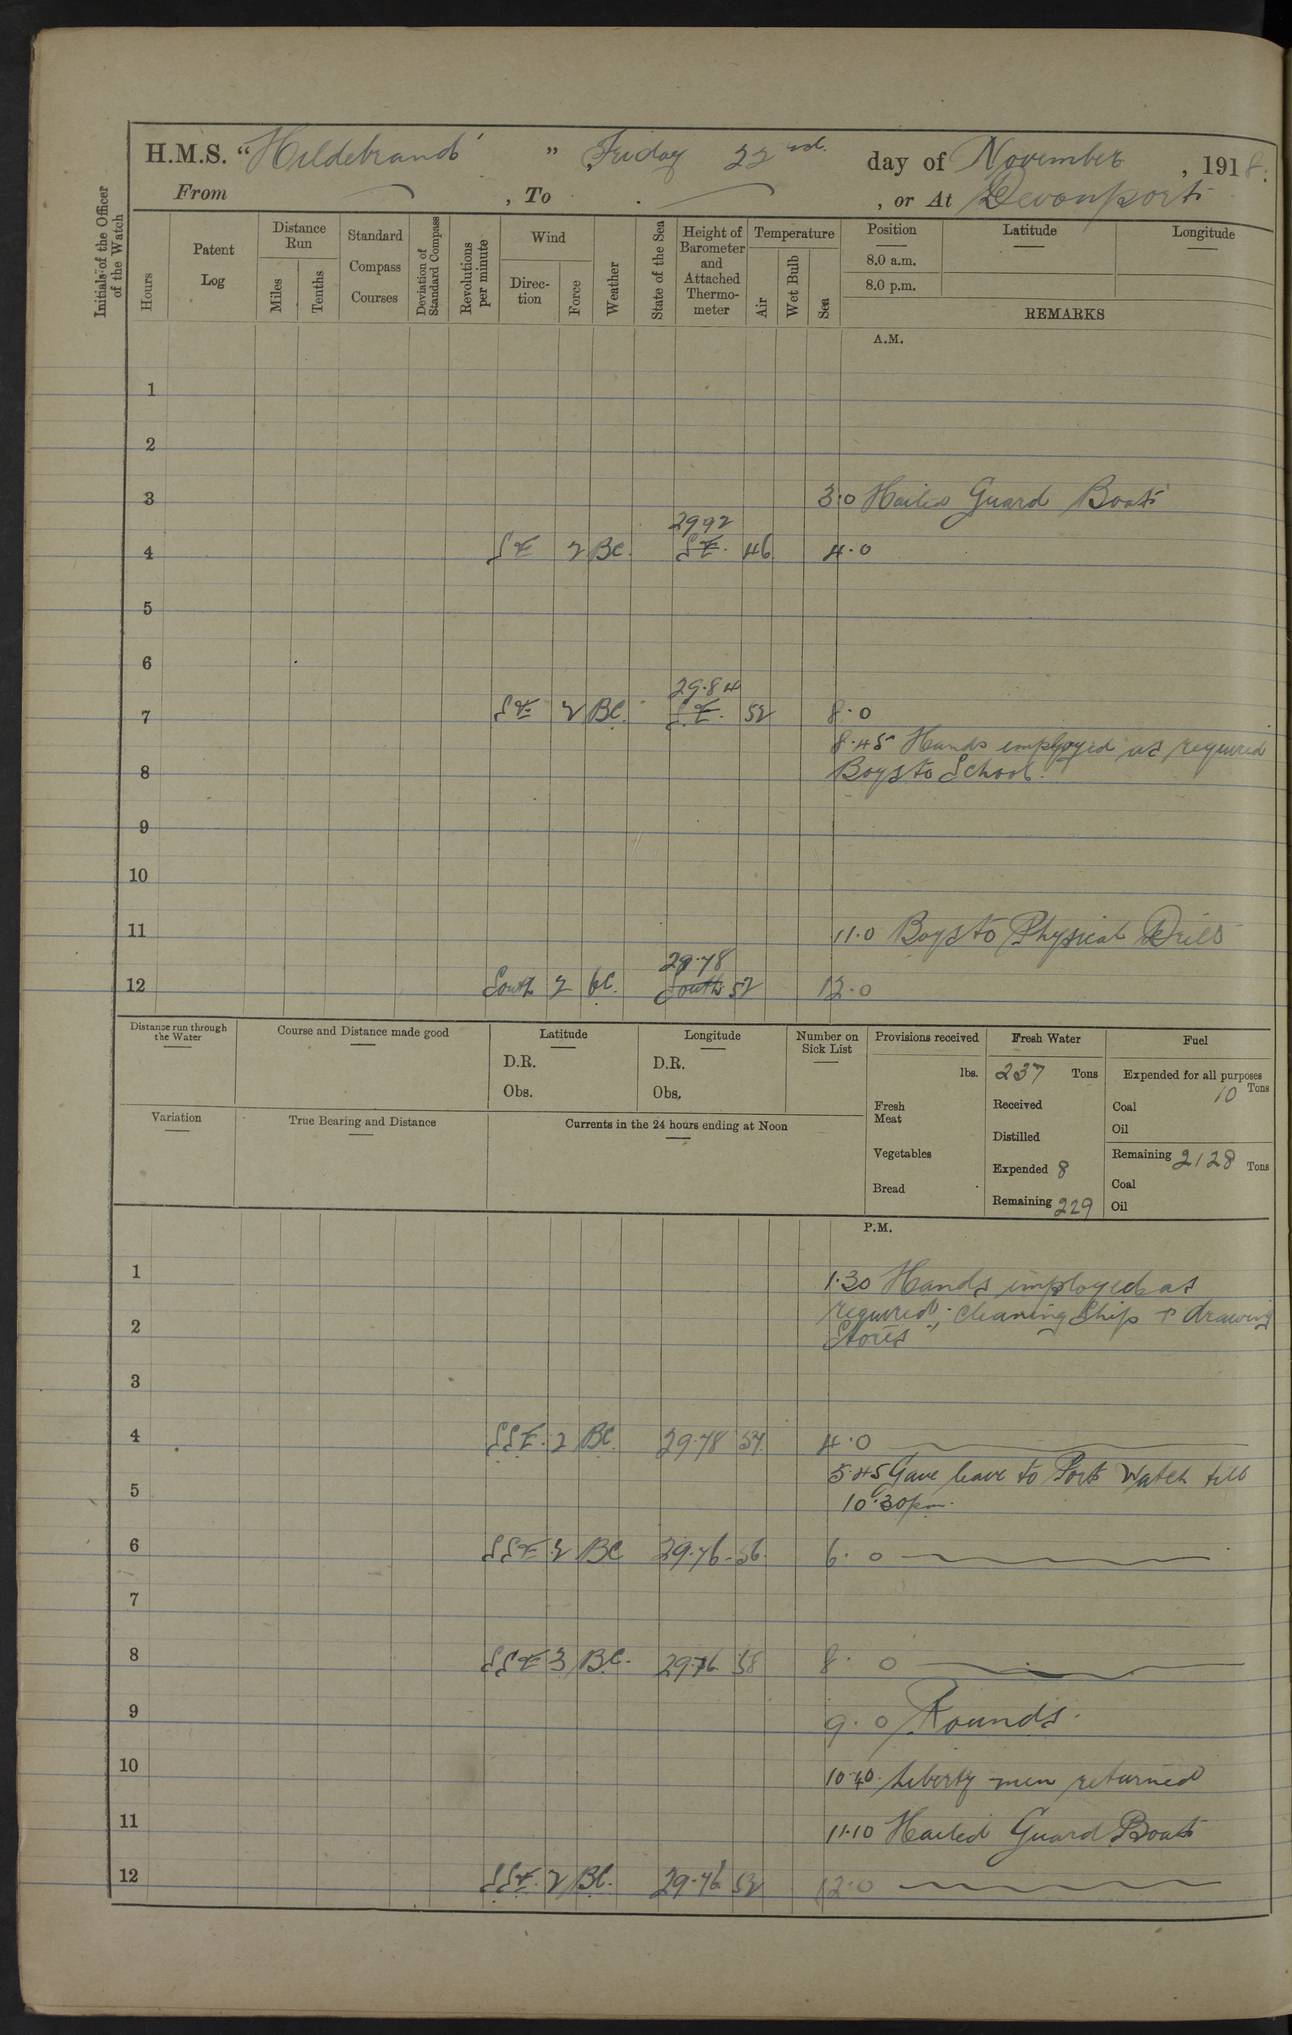 H.M.S. "Hildebrand" Friday 22nd day of November, 1918.
From , To , or At Devonport
Initials of the Officer of the Watch
Hours
Patent Log
Distance Run
Miles
Tenths
Standard Compass Courses
Deviation of Standard Compass
Revolutions per minute
Wind
Direction
Force
Weather
State of the Sea
Height of Barometer and Attached Thermometer
Temperature
Air
Wet Bulb
Sea
Position
Latitude
Longitude
8.0 a.m.
8.0 p.m.
REMARKS
A.M.
1
2
3 3.0 Hailed Guard Boat
29.92
4 SE 2 BC. SE. 46 4.0
5
6
29.84
7 SE 2 BC. SE. 52 8.0
8.45 Hands employed as required
8 Boys to School.
9
10
11 11.0 Boys to Physical Drill
29.78
12 South 2 bc. South 52 12.0
Distance run through the Water
Course and Distance made good
Latitude
D.R.
Obs.
Longitude
D.R.
Obs.
Number on Sick List
Provisions received
lbs.
Fresh Meat
Vegetables
Bread
Fresh Water
237 Tons
Received
Distilled
Expended 8
Remaining 229
Fuel
Expended for all purposes
10 Tons
Coal
Oil
Remaining 2128 Tons
Coal
Oil
Variation
True Bearing and Distance
Currents in the 24 hours ending at Noon
P.M.
1 1.30 Hands employed as
2 required; cleaning Ship + drawing
Stores
3
4 SSE. 2 BC. 29.78 4.0
5.45 Gave leave to Port Watch till
5 10.30 pm.
6 SSE 2 BC 29.76 56. 6.0
7
8 SSE 3 BC. 29.76 58 8.0
9 9.0 Rounds.
10 10.40. Liberty men returned
11 11.10 Hailed Guard Boat
12 SSE. 2 BC. 29.76 52 12.0